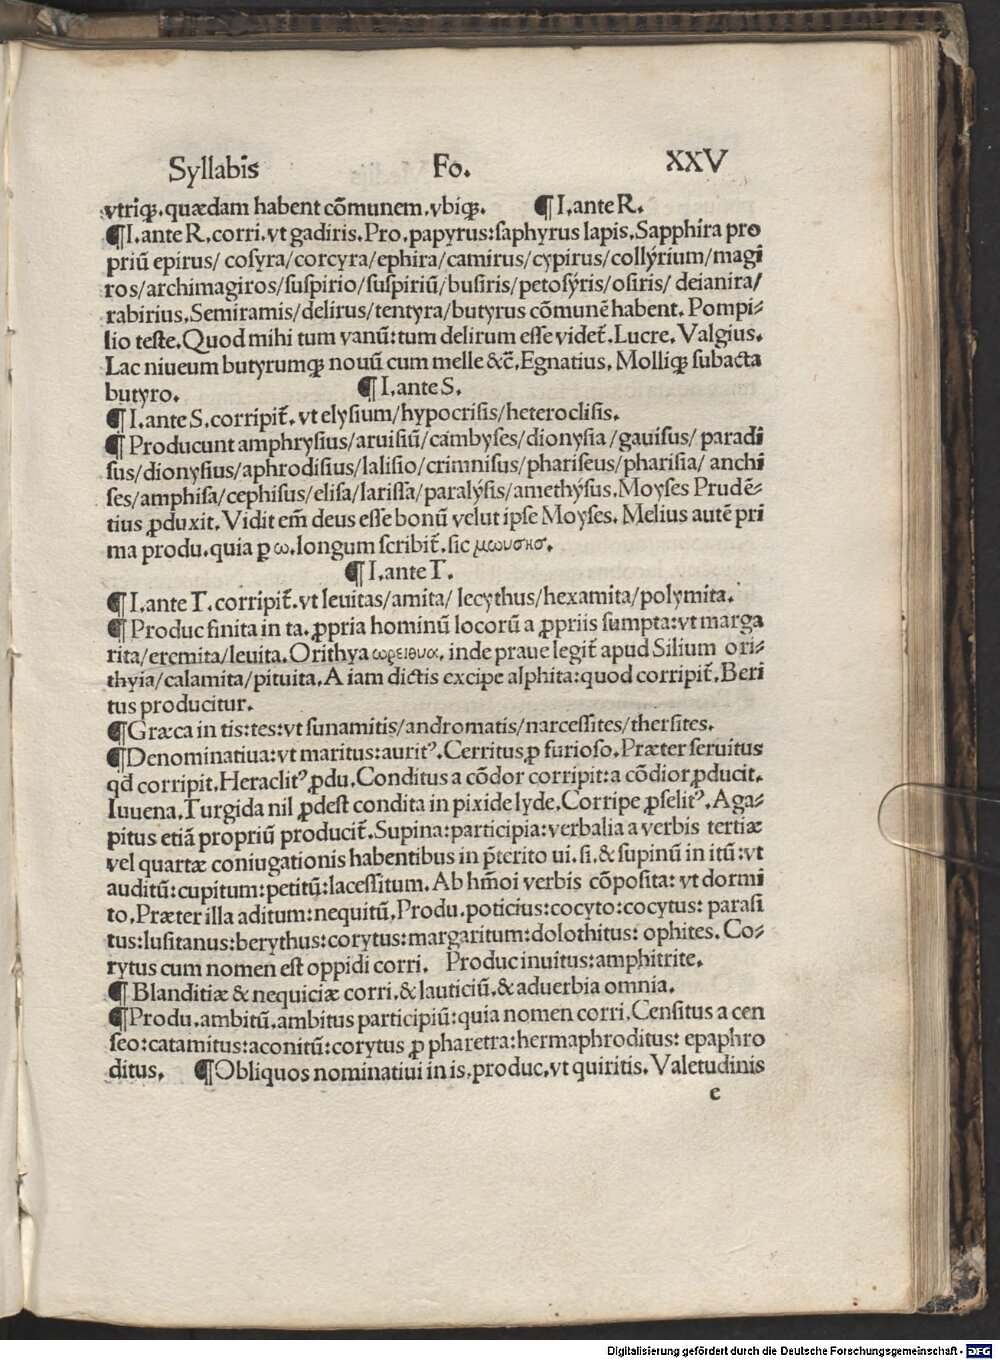 Syllabis Fo. XXV
vtriqꝫ.quædam habent cõmunem.vbiqꝫ. ¶I.ante R.
¶I.ante R.corri.vt gadiris.Pro.papyrus:ſaphyrus lapis.Sapphira pro
priũ epirus/ coſyra/corcyra/ephira/camirus/cypirus/collýrium/magi
ros/archimagiros/ſuſpirio/ſuſpiriũ/buſiris/petoſýris/oſiris/ deianira/
rabirius.Semiramis/delirus/tentyra/butyrus cõmunẽ habent. Pompi⸗
lio teſte.Quod mihi tum vanũ:tum delirum eſſe videt̃.Lucre.Valgius.
Lac niueum butyrumqꝫ nouũ cum melle &c̃.Egnatius.Molliqꝫ ſubacta
butyro. ¶I.ante S.
¶I.ante S.corripit̃.vt elyſium/hypocriſis/heterocliſis.
¶Producunt amphryſius/aruiſiũ/cambyſes/dionyſia/gauiſus/ paradi
ſus/dionyſius/aphrodiſius/laliſio/crimniſus/phariſeus/phariſia/ anchi
ſes/amphiſa/cephiſus/eliſa/lariſſa/paralýſis/amethýſus.Moyſes Prudẽ⸗
tius ꝓduxit.Vidit em̃ deus eſſe bonũ velut ipſe Moyſes.Melius autẽ pri
ma produ.quia ꝑ ω.longum ſcribit̃.ſic μωυσησ.
¶I.ante T.
¶I.ante T.corripit̃.vt leuitas/amita/ lecythus/hexamita/polymita.
¶Produc finita in ta.ꝓpria hominũ locorũ a ꝓpriis ſumpta:vt marga
rita/eremita/leuita.Orithya ωρειθυα.inde praue legit̃ apud Silium ori⸗
thyia/calamita/pituita.A iam dictis excipe alphita:quod corripit̃.Beri
tus producitur.
¶Græca in tis:tes:vt ſunamitis/andromatis/narceſſites/therſites.
¶Denominatiua:vt maritus:auritꝰ.Cerritus ꝓ furioſo.Præter ſeruitus
qd̃ corripit.Heraclitꝰ ꝓdu.Conditus a cõdor corripit:a cõdior ꝓducit.
Iuuena.Turgida nil ꝓdeſt condita in pixide lyde.Corripe ꝓſelitꝰ.Aga⸗
pitus etiã propriũ producit̃.Supina:participia:verbalia a verbis tertiæ
vel quartæ coniugationis habentibus in p̃terito ui.ſi.& ſupinũ in itũ:vt
auditũ:cupitum:petitũ:laceſſitum.Ab hm̃oi verbis cõpoſita: vt dormi
to.Præter illa aditum:nequitũ.Produ.poticius:cocyto:cocytus: paraſi
tus:luſitanus:berythus:corytus:margaritum:dolothitus: ophites.Co⸗
rytus cum nomen eſt oppidi corri. Produc inuitus:amphitrite.
¶Blanditiæ & nequiciæ corri.& lauticiũ.& aduerbia omnia.
¶Produ.ambitũ.ambitus participiũ:quia nomen corri.Cenſitus a cen
ſeo:catamitus:aconitũ:corytus ꝓ pharetra:hermaphroditus: epaphro
ditus. ¶Obliquos nominatiui in is.produc.vt quiritis.Valetudinis
e
Digitalisierung gefördert durch die Deutsche Forschungsgemeinschaft - DFG